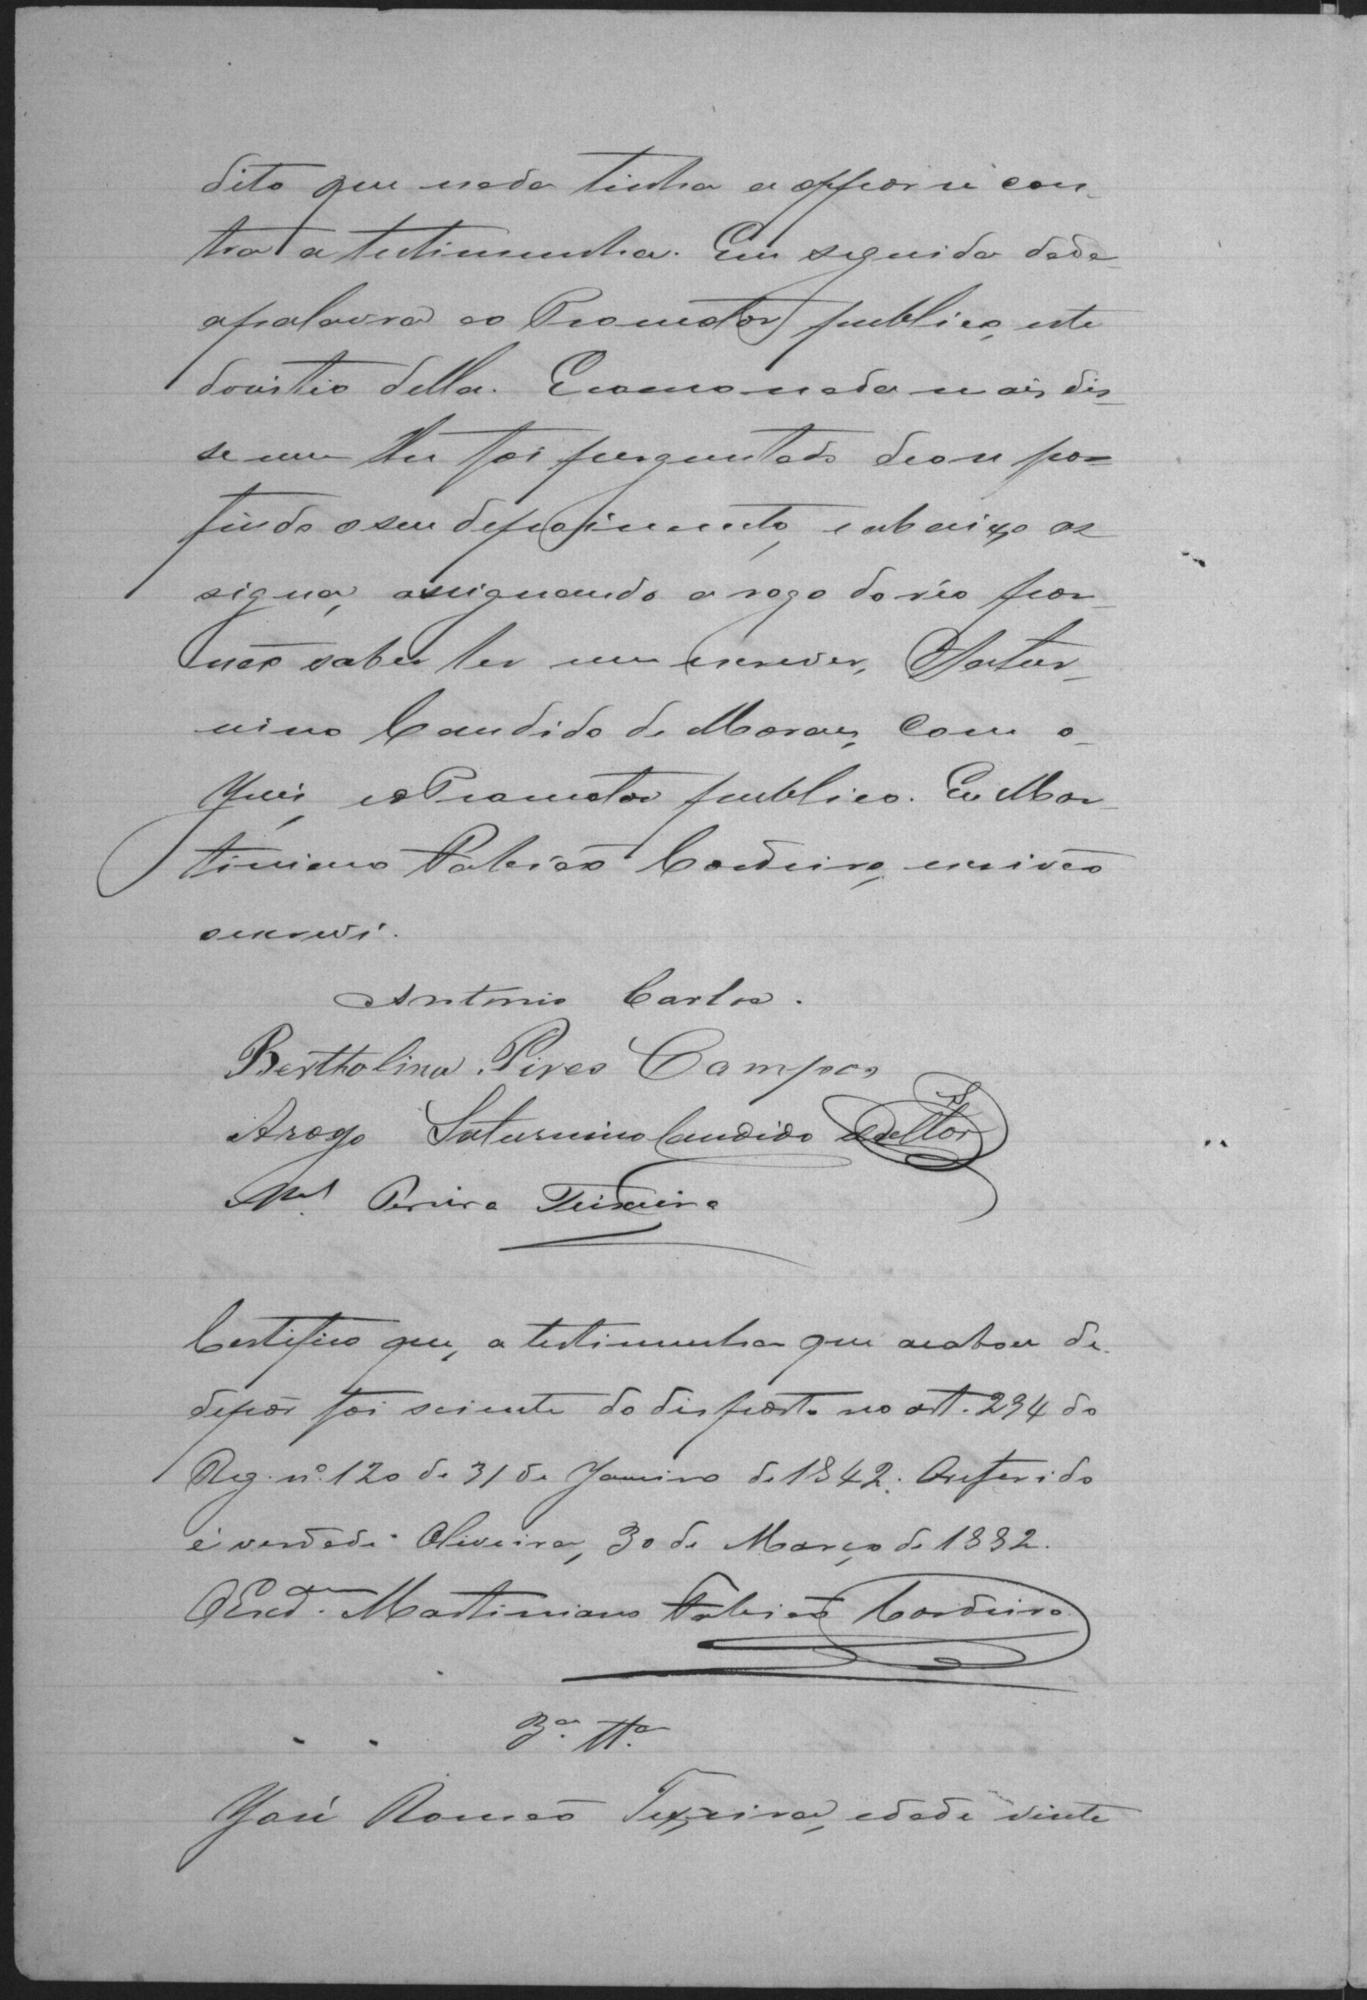 dito que nada tinha a oppor-se con-
tra a testimunha. Em seguida dada
a palavra ao Promotor publico, este
desistio della. E como nada mais dis-
se nem lhe foi perguntado deu-se por
findo o seu depoimento, e abaixo as-
signa, assignando a rogo do réo por
não saber ler nem escrever, Satur-
nino Candido de Moraes, com o
Juis, e o Promotor publico. Eu Mar-
tiniano Fabião Cordeiro, escrivão
o escrevi.
Antonio Carlos.
Bertholino Pires Campos
Arogo Saturnino Candido
Mel Pereira Teixeira
Certifico que, a testimunha que acabou de
depôr foi sciente do disposto no art. 294 do
Reg. nº 120 de 31 de Janeiro de 1842. O referido
é verdade. Oliveira, 30 de Março de 1882.
O Escam. Martiniano Fabião Cordeiro
3ª Tta.
José Romão Teixeira, edade vinte